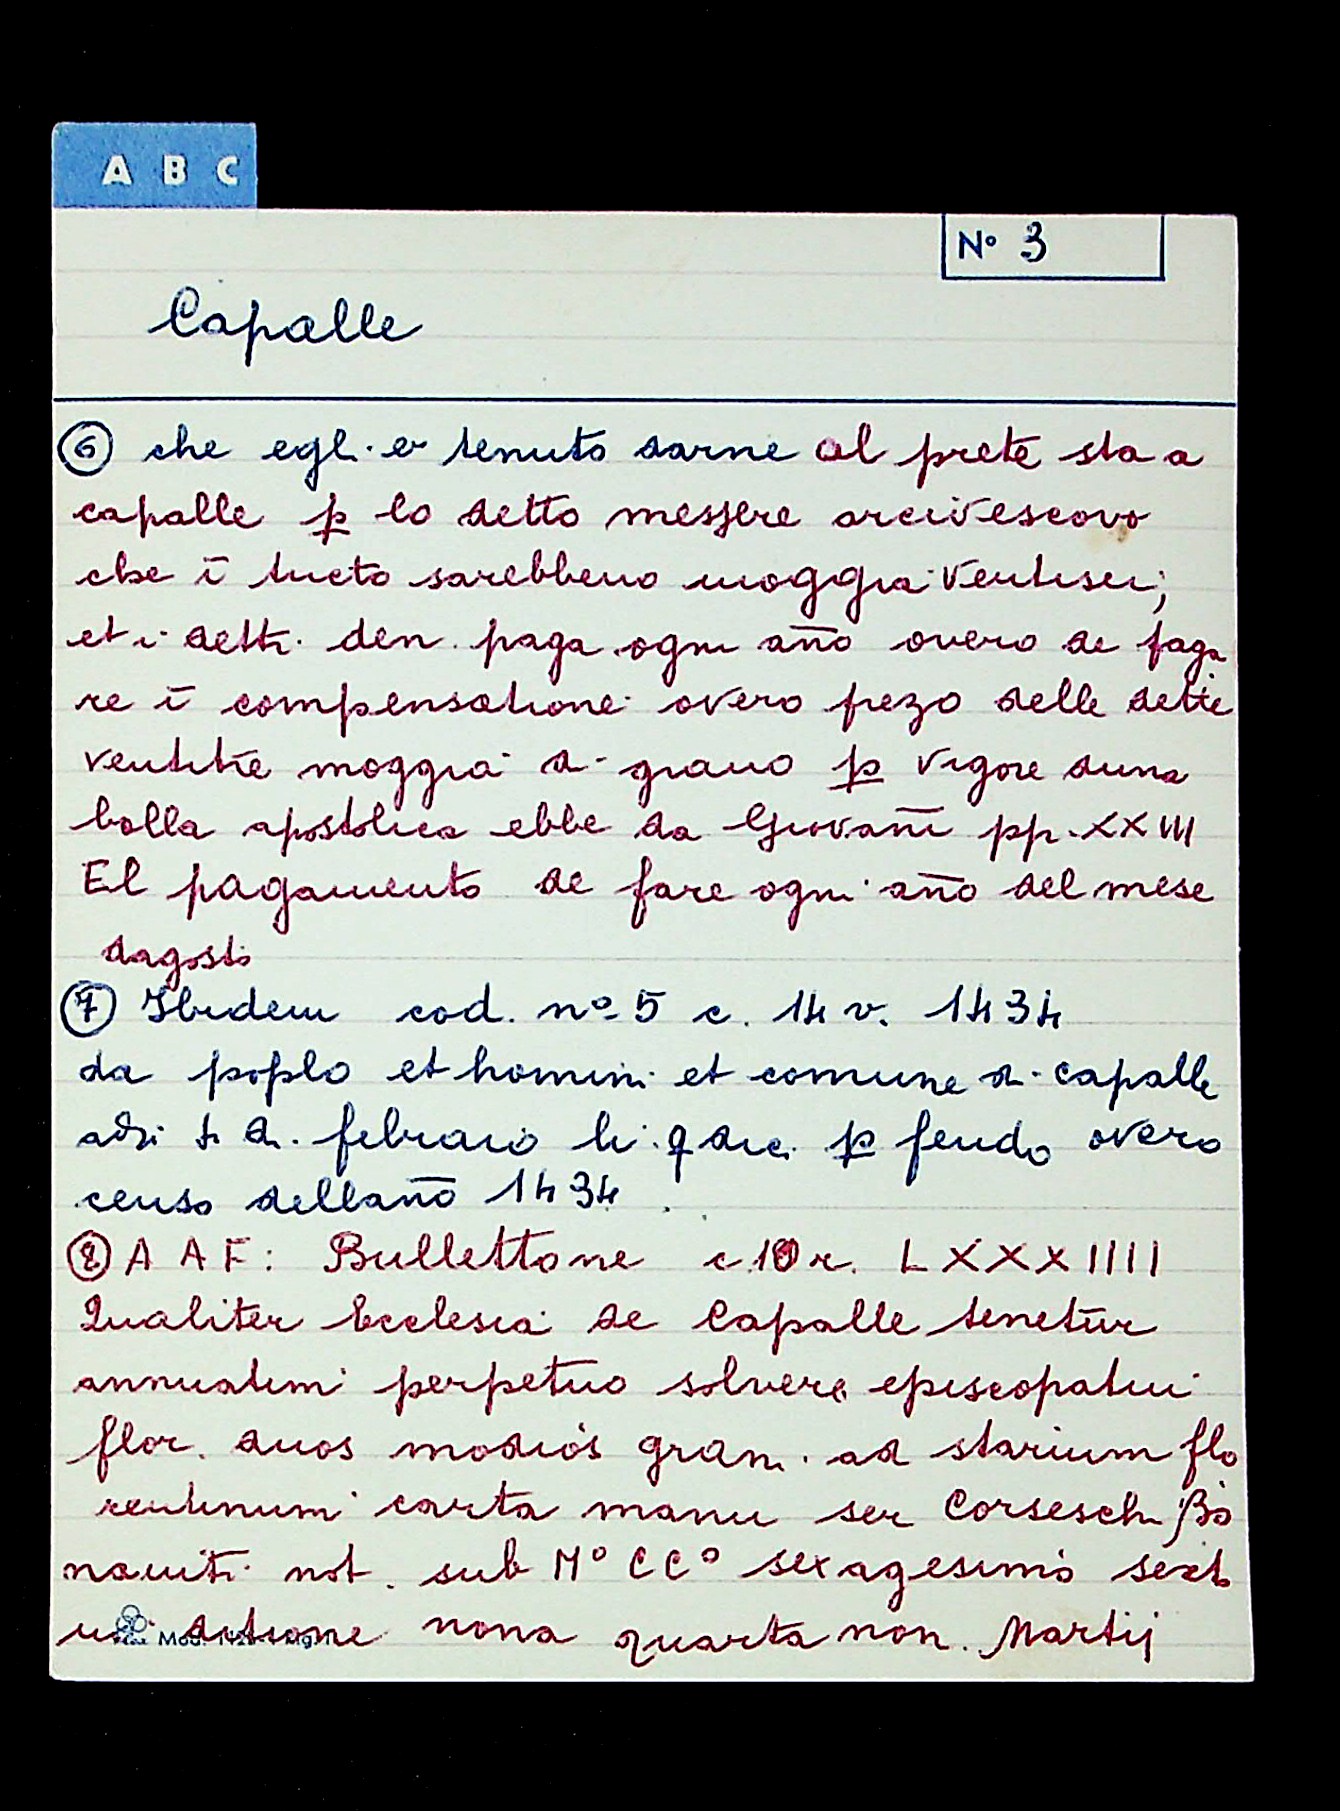 A B C
N° 3
Capalle
⑥ che egli è tenuto darne al prete sta a
capalle p̱ lo detto messere arcivescovo
che ī tucto sarebbeno moggia ventisei;
et i detti den. paga ogni año overo de paga
re ī compensatione overo prezo delle dette
ventitre moggia di grano p̱ vigore duna
bolla apostolica ebbe da Giovañi pp. XXIII
El pagamento de fare ogni año del mese
dagosto
⑦ Ibidem cod. n° 5 c. 14 v. 1434
da poplo et homini et comune di capalle
adi 4 di febraio li. q dic. p̱ feudo overo
censo dellaño 1434
⑧ A A F: Bullettone c. 10 r. L X X X I I I I
Qualiter Ecclesia de Capalle tenetur
annuatim perpetuo solvere episcopatui
flor. duos modios grani ad starium flo
rentinum carta manu ser Corseschi Bo
naiuti not. sub M° C C° sexagesimo sexto
indictione nona quarta non. Martij